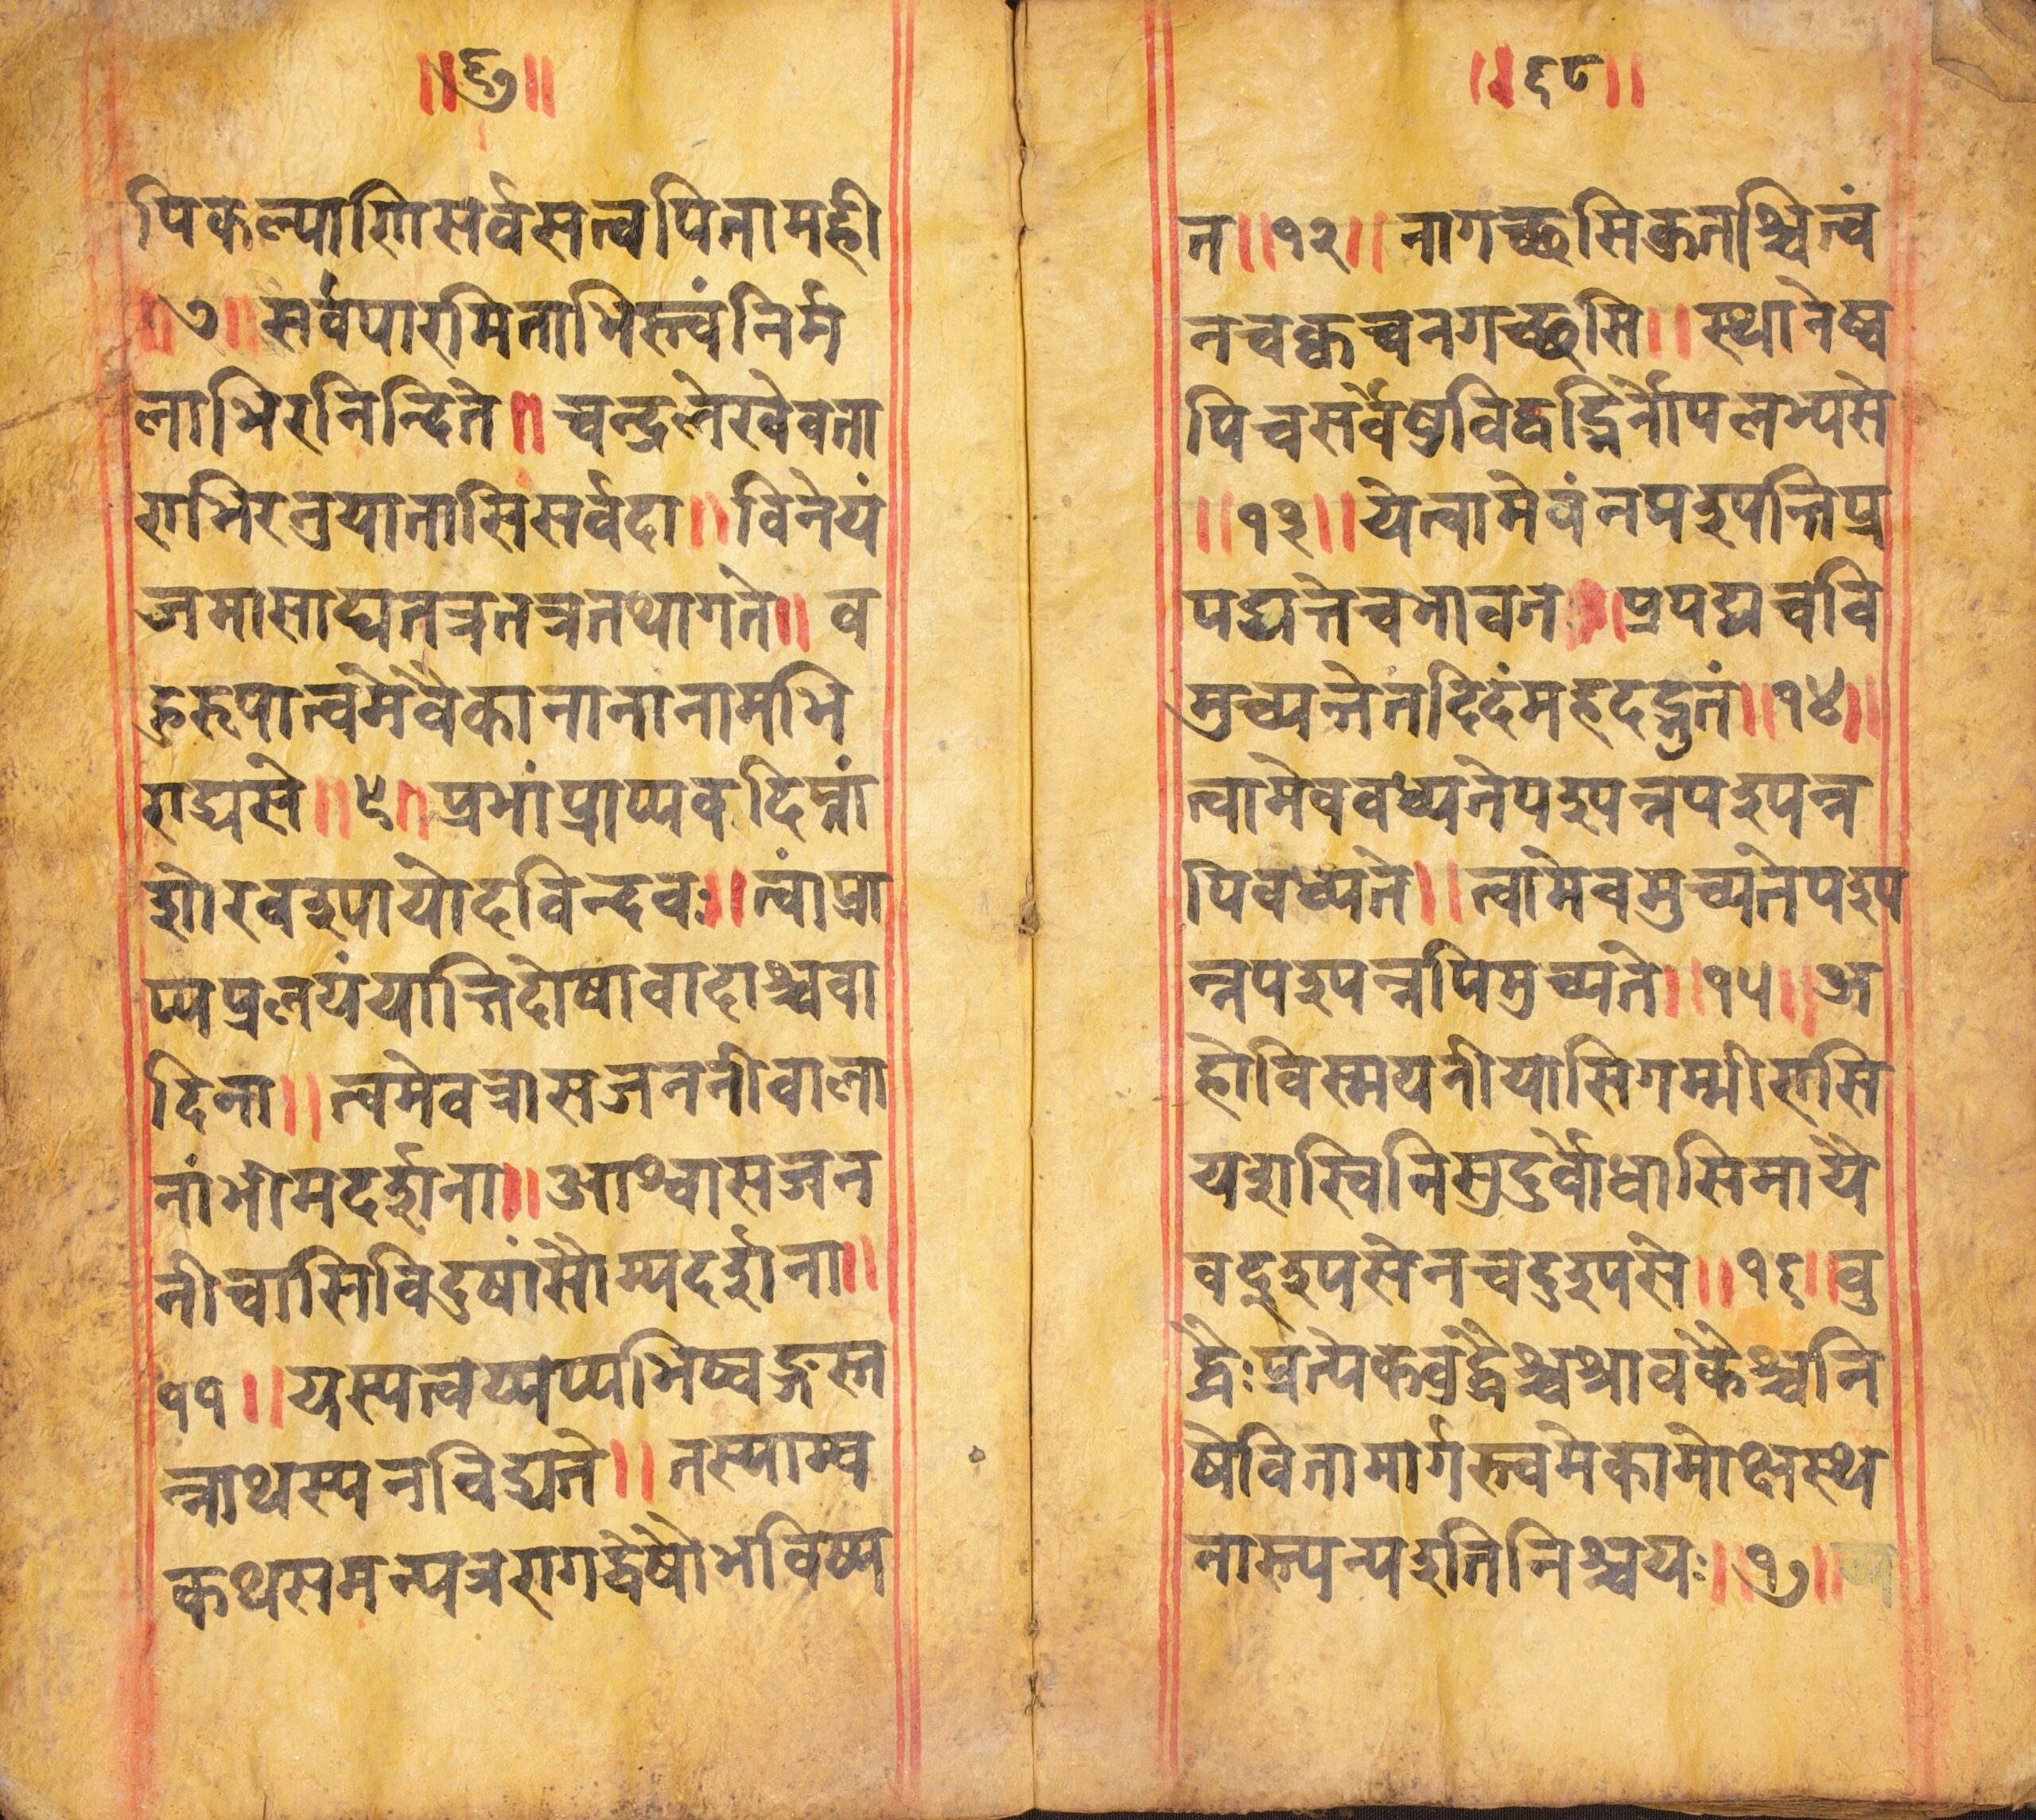 ॥६७॥
पिकल्याणिसर्वसत्वपितामही
॥७॥ सर्वपारमिताभिस्त्वंनिर्म
लाभिरनिन्दिते॥ चन्द्रलेखेवता
राभिरनुयातासिसर्वदा॥ विनेयं
जमासाद्यतत्रतत्रतथागते॥ व
हुरुपात्वमेवैकानानानामभि
राद्यसे॥९॥प्रभांप्राप्यकदिप्तां
शोरवश्यायोदविन्दवः॥ त्वांप्रा
प्यप्रलयंयान्तिदोषावादाश्चवा
दिना॥ त्वमेवत्रासजननीवाला
नांभीमदर्शाना॥ आश्वासजन
नीचासिविदुषांसौम्यदर्शाना॥
११॥ यस्यत्वय्यप्यभिष्वङ्गस्त
न्नाथस्यनविद्यते॥ तस्याम्व
कथसमन्यत्ररागद्वेषोभविष्य
॥६८॥
त॥१२॥ नागच्छसिक्रुतश्चित्वं
नचक्वचनगच्छसि॥ स्थानेष्व
पिचसर्वेषुविद्वद्भिर्नोपलभ्यसे
॥१३॥येत्वामेवंनपश्यन्तिप्र
पद्यन्तेचभावत॥प्रपद्यचवि
मुच्यन्तेतदिदंमहदद्भुतं॥१४॥
त्वामेववध्यतेपश्यन्नपश्यन्न
पिवध्यते॥ त्वामेवमुच्यतेपश्य
न्नपश्यन्नपिमुच्यते॥१५॥ अ
होविस्मयनीयासिगम्भीरासि
यशास्विनिसुदुर्वोधासिमायै
वदृश्यसेनचदुश्यसे॥१६॥वु
द्धैःप्रत्येकवुद्धैश्चश्रावकैश्चनि
षेवितामार्गस्त्वमेकामोक्षस्थ
नास्त्यन्यइतिनिश्चयः॥१७॥